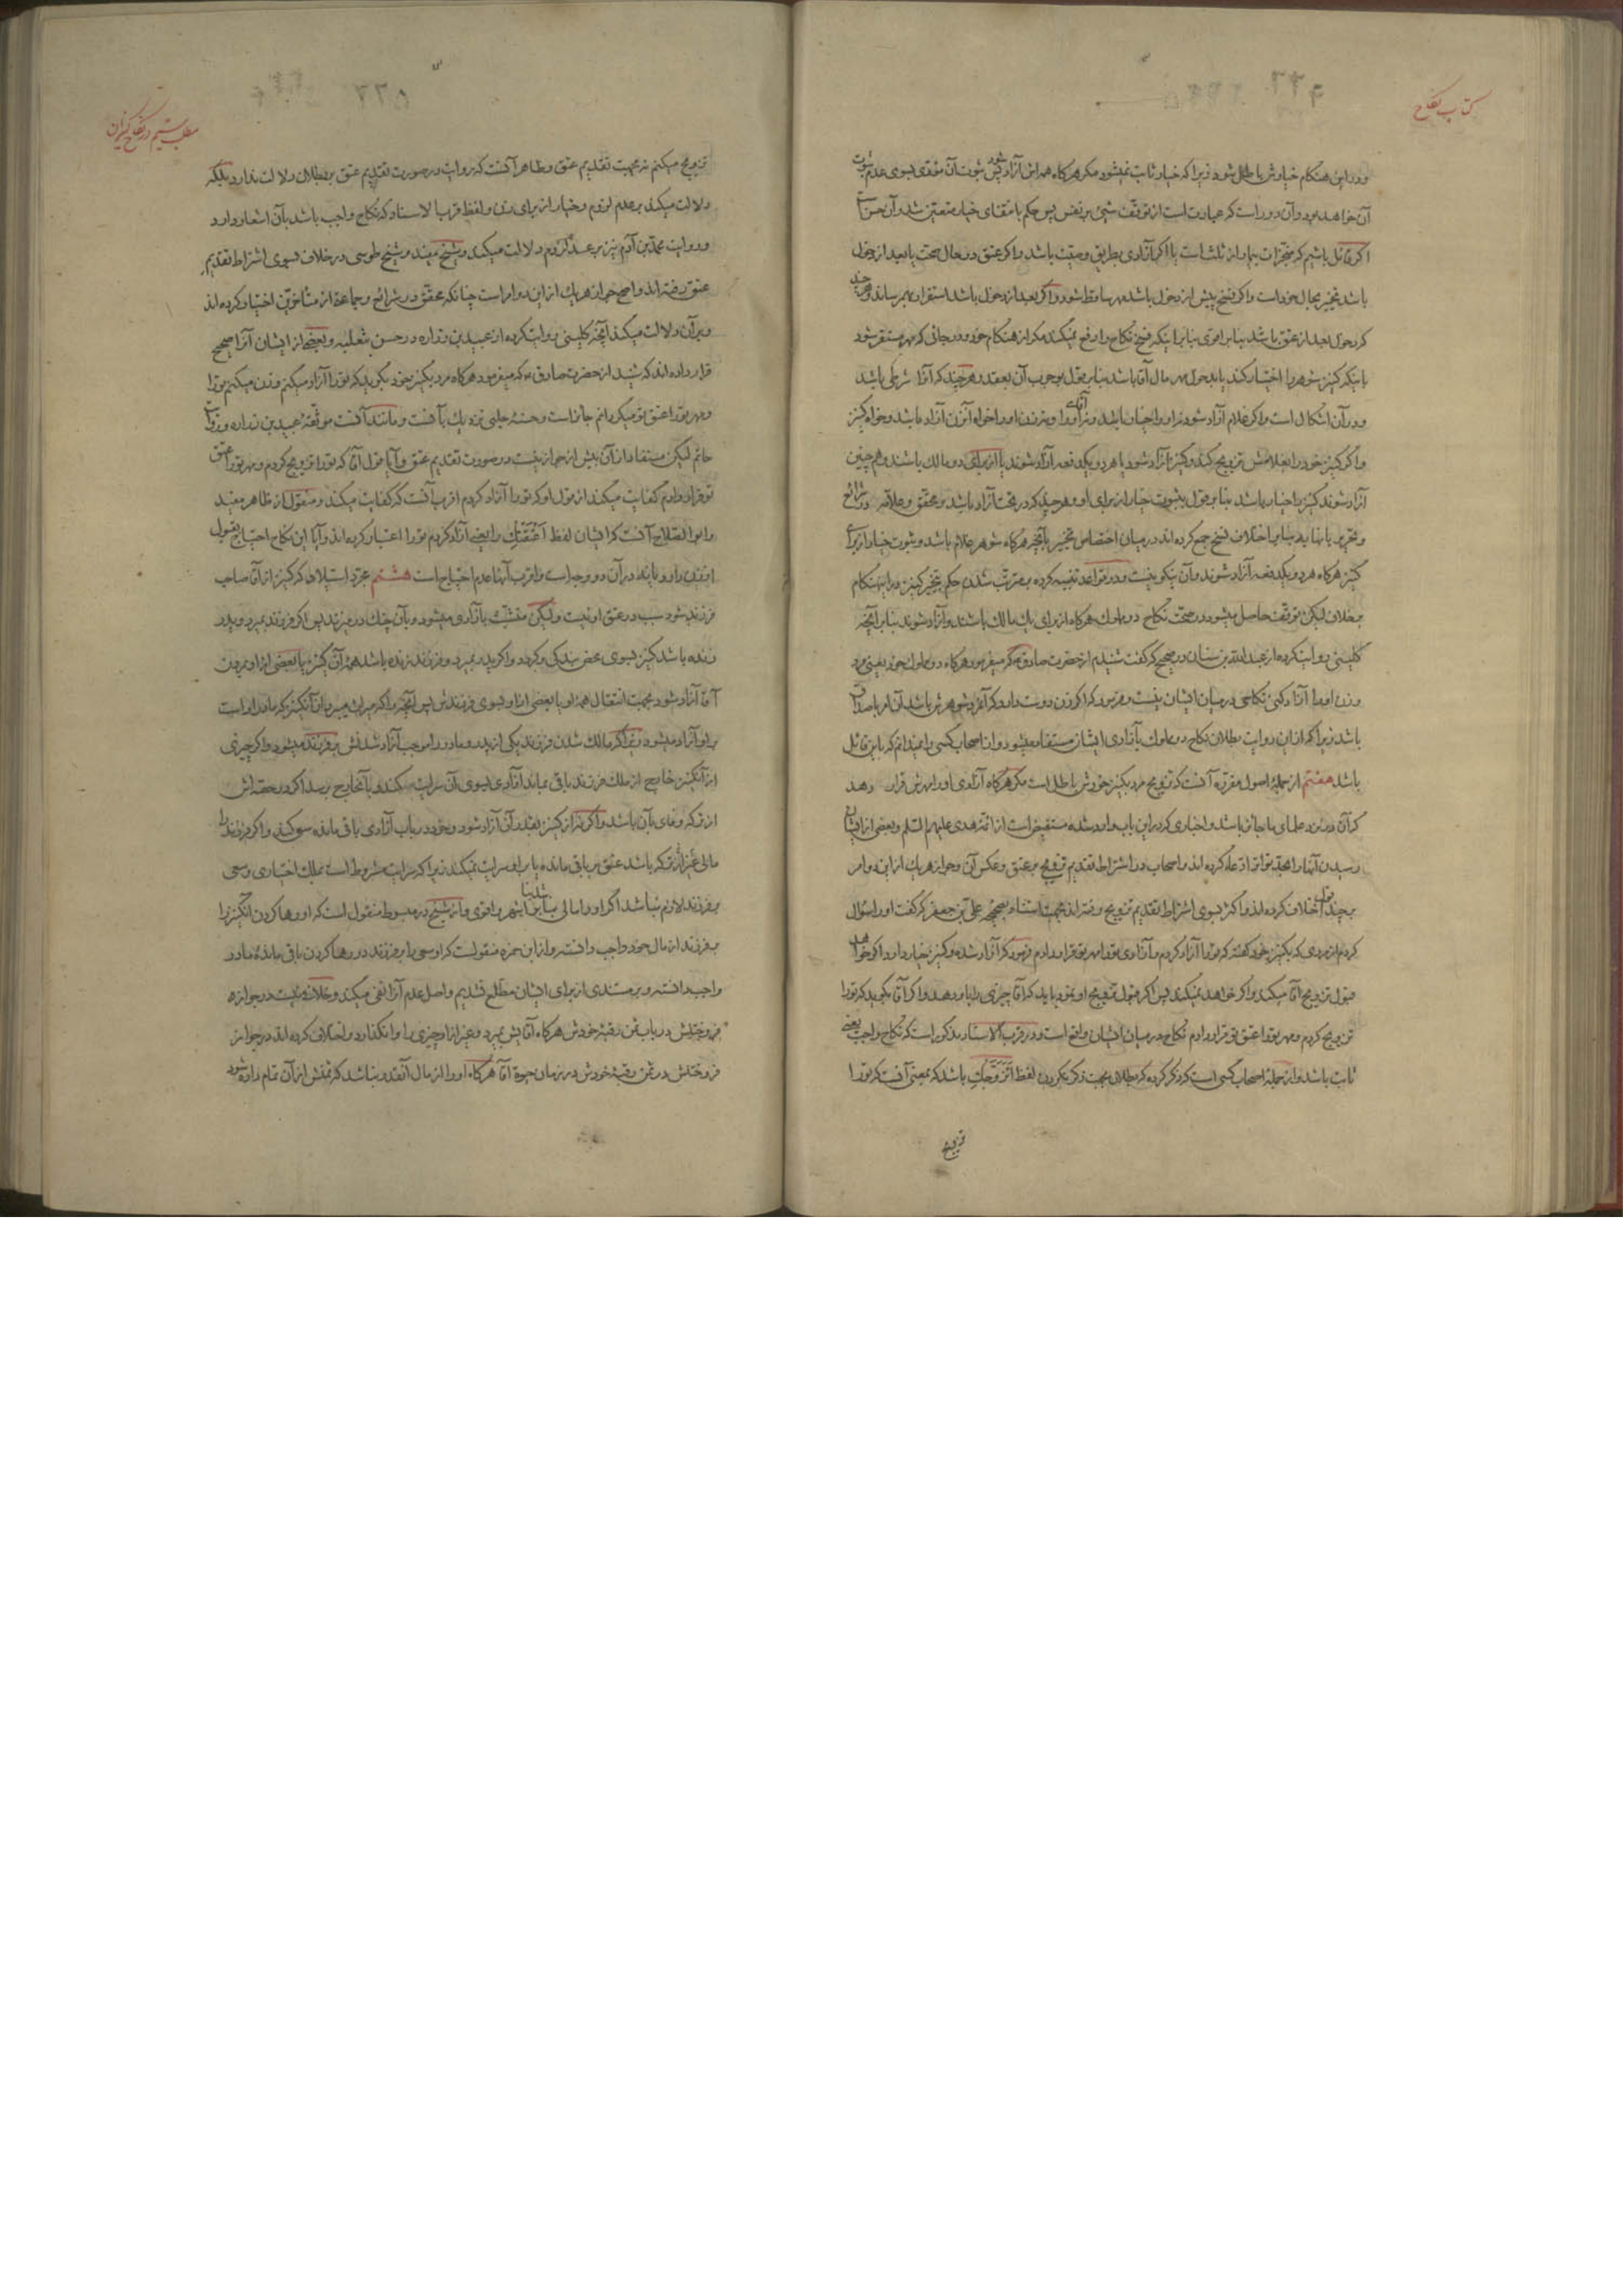 کتاب نکاح
ودر این هنکام خیارش باطل شود زیرا که خیار ثابت نمیشود مکر هرکاه همه این آزاد شود پس ثبوت آن مؤدی بسوی عدم ثبوت
آن خواهد بود و آن دور است که عبارت است از توقف شیئ بر نفس پس حکم بانتفای خیار متعین شد و آن حسن است
اکر قائل باشیم که منجزات بیمار از ثلث است یا اکر آزادی بطریق وصیت باشد واکر عتق در حال صحت یا بعد از دخول
باشد تخییر بحال خود است واکر فسخ پیش از دخول باشد مهر ساقط شود واکر بعد از دخول باشد استقرار بهم رساند وهر چند
که دخول بعد از عتق باشد بنا بر اقوی بنا بر اینکه فسخ نکاح را رفع نمیکند مکر از هنکام خود ودر جائی که مهر مستقر شود
یا اینکه کنیز شوهر را اختیار کند یا بدخول مهر مال آقا باشد بنا بر قول بوجوب آن بعقد وهر چند که آقا شرطی باشد
ودر آن اشکال است واکر غلام آزاد شود نه او را خیار باشد ونه آقای او را ونه زن او را خواه آنزن آزاد باشد وخواه کنیز
واکر کنیز خود را بغلامش تزویج کند وکنیز آزاد شود یا هر دو یکدفعه آزاد شوند یا از برای دو مالک باشند وهم چنین
آزاد شوند کنیز را خیار باشد بنا بر قول بثبوت خیار از برای او وهر چند که در تحت آزاد باشد ومحقق وعلامه در شرائع
وتحریر یا بنا بر اختلاف نسخ جمع کرده اند در میان اختصاص تخییر بآنچه هرکاه شوهر غلام باشد وثبوت خیار از برای
کنیز هرکاه هر دو یکدفعه آزاد شوند وآن نیکو نیست ودر قواعد تنبیه کرده بمترتب شدن حکم بتخییر کنیز در اینهنکام
بخلاف لیکن توقف حاصل میشود در صحت نکاح دو مملوک هرکاه از برای یک مالک باشند وآزاد شوند بنا بر آنچه
کلینی روایتکرده از عبد الله بن سنان در صحیح که کفت شنیدم از حضرت صادق ع که میفرمود هرکاه دو مملوک خود یعنی مرد
وزن او را آزاد کنی نکاحی در میان ایشان نیست وفرمود که اکر زن دوست دارد که آنمرد شوهرش باشد آن امر با صداق
باشد زیرا که از این روایت بطلان نکاح دو مملوک بآزادی ایشان مستفاد میشود واز اصحاب کسی را نمیدانم که باین قائل
باشد هفتم از جملهٔ اصول مقرره آنست که تزویج مرد بکنیز خودش باطل است مکر هرکاه آزادی او را مهرش قرار دهد
که آن در نزد علمای ما جائز باشد واخباری که در این باب وارد شده مستفیض است از ائمهٔ هدی علیهم السلم وبعضی از ایشان
رسیدن آنها را بحد تواتر ادعا کرده اند واصحاب در اشتراط تقدیم تزویج بر عتق وعکس آن وجواز هر یک از این دو امر
بر چند قول اختلاف کرده اند واکثر بسوی اشتراط تقدیم تزویج رفته اند بجهت استناد بصحیحهٔ علی بن جعفر که کفت او را سؤال
کردم از مردی که بکنیز خود کفته که تو را آزاد کردم وآزادی تو را مهر تو قرار دادم فرمود که آزاد شده وکنیز بخیار دارد اکر خواهد
قبول تزویج آقا میکند واکر خواهد نمیکند پس اکر قبول تزویج او نمود باید که آقا چیزی را باو بدهد واکر آقا بکوید که تو را
تزویج کردم ومهر تو را عتق تو قرار دادم نکاح در میان ایشان واقع است ودر قرب الاسناد مذکور است که نکاح واجب یعنی
ثابت باشد واز جملهٔ اصحاب کسی است که ذکر کرده که بطلان بجهت ذکر نکردن لفظ اَتَزَوَّجُکِ باشد که بمعنی آنست که تو را
تزویج
مطلب ششم در نکاح کنیزان
تزویج میکنم نه بجهت تقدیم عتق وظاهر آنست که روایت در صورت تقدیم عتق بر بطلان دلالت ندارد بلکه
دلالت میکند بر عدم لزوم وخیار از برای زن ولفظ قرب الاسناد که نکاح واجب باشد بآن اشعار دارد
وروایت محمد بن آدم نیز بر عدم لزوم دلالت میکند وشیخ مفید وشیخ طوسی در خلاف بسوی اشتراط تقدیم
عتق رفته اند واصح جواز هر یک از این دو امر است چنانکه محقق در شرائع وجماعة از متأخرین اختیار کرده اند
وبر آن دلالت میکند آنچه کلینی روایتکرده از عبید بن زراره در حسن بثعلبه وبعضی از ایشان آنرا صحیح
قرار داده اند که شنید از حضرت صادق ع که میفرمود هرکاه مرد بکنیز خود بکوید که تو را آزاد میکنم وزن میکنم تو را
ومهر تو را عتق تو میکردانم جائز است وحسنهٔ حلبی نزدیک بآنست ومانند آنست موثقهٔ عبید بن زراره وروایت
حاتم لیکن مستفاد از آن بیش از جواز نیست در صورت تقدیم عتق وآیا قول آقا که تو را تزویج کردم ومهر تو را عتق
تو قرار دادم کفایت میکند از قول او که تو را آزاد کردم اقرب آنست که کفایت میکند ومنقول از ظاهر مفید
وابو الصلاح آنست که ایشان لفظ اَعْتَقْتُکِ را یعنی آزاد کردم تو را اعتبار کرده اند وآیا این نکاح احتیاج بقبول
آنزن دارد یا نه در آن دو وجه است واقرب آنها عدم احتیاج است هشتم مجرد استیلاد که کنیز از آقا صاحب
فرزند شود سبب در عتق او نیست ولیکن متشبث بآزادی میشود وبآن چنک در میزند پس اکر فرزند بمیرد وپدر
زنده باشد کنیز بسوی محض بندکی وکردد واکر پدر بمیرد وفرزند زنده باشد همهٔ آن کنیز یا بعضی از او بموت
آقا آزاد شود بجهت انتقال همهٔ او یا بعضی از او بسوی فرزندش پس آنچه را که میراث میبرد از آنکنیز که مادر او است
بر او آزاد میشود زیرا که مالک شدن فرزند یکی از پدر ومادر را موجب آزاد شدنش بر فرزند میشود واکر چیزی
از آنکنیز خارج از ملک فرزند باقی بماند آزادی بسوی آن سرایت میکند وبآنخارج برسد اکر در حصه اش
از ترکه وفای بآن باشد واکر نه از کنیز بقدر آن آزاد شود وخود در باب آزادی باقی مانده سعی کند واکر فرزند را
مالی غیر از ترکه باشد عتق بر باقی مانده یا بر او سرایت نمیکند زیرا که سرایت مشروط است بملک اختیاری وسعی
بر فرزند لازم نباشد اکر او را مالی نباشد بنا بر اشهر واقوی واز شیخ در مبسوط منقول است که او رها کردن آنکنیز را
بر فرزند از مال خود واجب دانسته واز ابن حمزه منقولست که او سعی را بر فرزند در رها کردن باقی ماندهٔ مادر
واجب دانسته وبر مستندی از برای ایشان مطلع نشدیم واصل عدم آنرا نفی میکند وخلاف نیست در جواز ه
فروختنش در باب ثمن رقبهٔ خودش هرکاه آقایش بمیرد وغیر از او چیزی را وانکذارد واختلاف کرده اند در جواز
فروختنش در ثمن رقبهٔ خودش در زمان حیوة آقا هرکاه او را از مال آنقدر نباشد که ثمنش از آن تمام داده شود